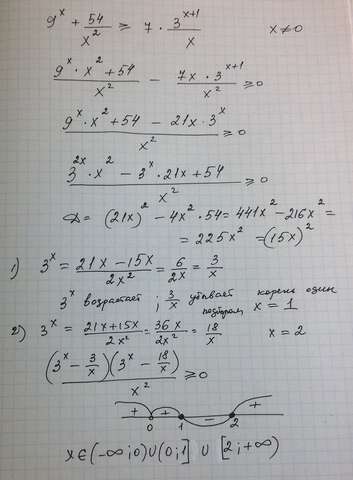 9^x + 54/x² ≥ 7 · 3^(x+1)/x    x≠0
(9^x · x² + 54)/x² − (7x · 3^(x+1))/x² ≥ 0
(9^x · x² + 54 − 21x · 3^x)/x² ≥ 0
(3^(2x) · x² − 3^x · 21x + 54)/x² ≥ 0
D = (21x)² − 4x² · 54 = 441x² − 216x² =
= 225x² = (15x)²
1) 3^x = (21x − 15x)/(2x²) = 6/(2x) = 3/x
3^x возрастает ; 3/x убывает корень один
подбором, x = 1
2) 3^x = (21x + 15x)/(2x²) = 36x/(2x²) = 18/x    x = 2
((3^x − 3/x)(3^x − 18/x))/x² ≥ 0
+ + − +
0 1 2
x ∈ (−∞; 0) ∪ (0; 1] ∪ [2; +∞)